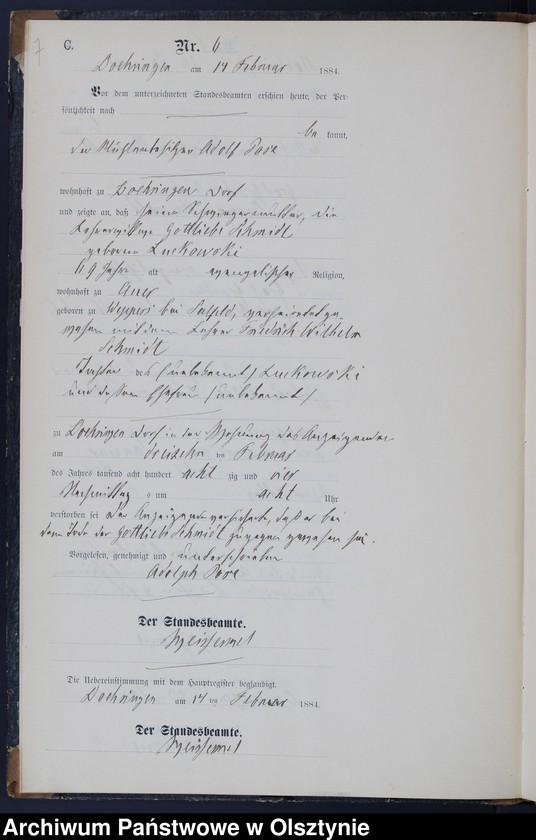 7
C.
Nr. 6
Doehringen am 14 Februar 1884.
Vor dem unterzeichneten Standesbeamten erschien heute, der Per-
sönlichkeit nach
be kannt,
der Mühlenbesitzer Adolf
wohnhaft zu Doehringen Dorf
und zeigte an, daß seine Schwiegermutter, die
Lehrerwittwe Gottliebe Schmidt
geborene Luckowski
69 Jahre alt evangelischer Religion,
wohnhaft zu
geboren zu bei Saalfeld, verheirathet ge-
wesen mit dem Lehrer Friedrich Wilhelm
Schmidt
Tochter des (unbekannt) Luckowski
und dessen Ehefrau (unbekannt)
zu Doehringen Dorf in der Wohnung des Anzeigenden
am dreizehn ten Februar
des Jahres tausend acht hundert acht zig und vier
Nachmittag s um acht Uhr
verstorben sei der Anzeigende versicherte, daß er bei
dem Tode der Gottliebe Schmidt zugegen gewesen sei.
Vorgelesen, genehmigt und unterschrieben
Adolph
Der Standesbeamte.
Die Uebereinstimmung mit dem Hauptregister beglaubigt.
Doehringen am 14 ten Februar 1884.
Der Standesbeamte.
Archiwum Państwowe w Olsztynie